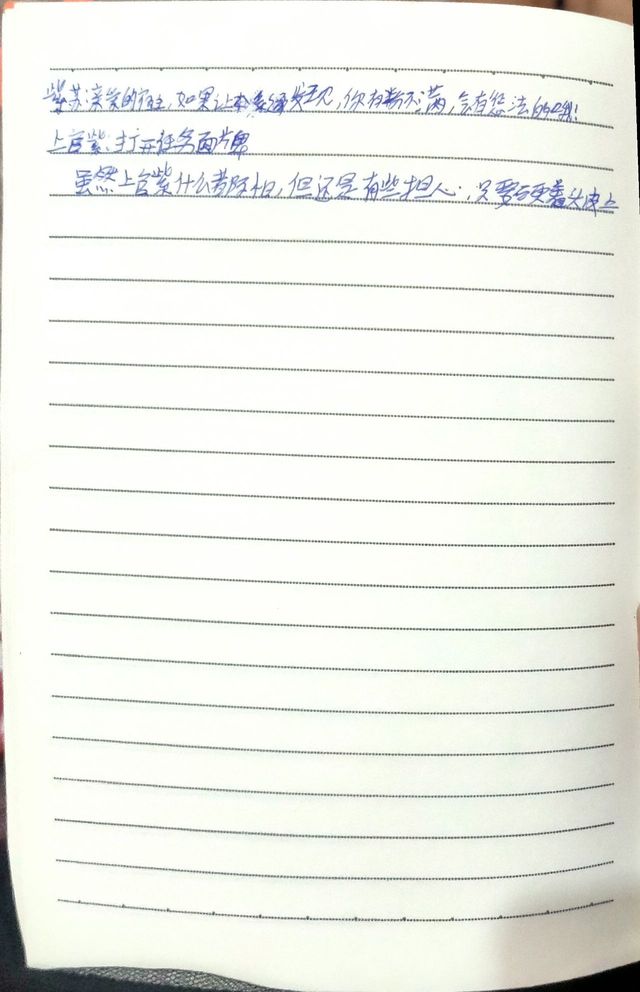 紫苏亲爱的宿主,如果让本系统发现,你有所不满,会有惩法的哦!
上官紫:打开任务面板
虽然上官紫什么都不怕,但还是有些担心,只要硬着头皮上